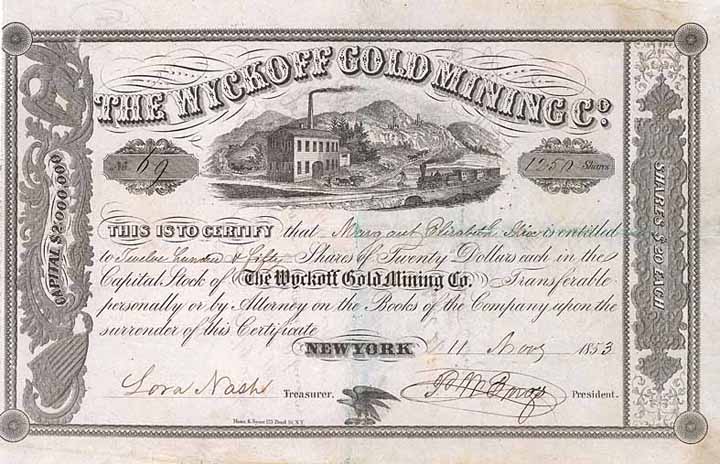 THE WYCKOFF GOLD MINING Co.
No. 69
1250 Shares
CAPITAL $2,000,000
SHARES $20 EACH
THIS IS TO CERTIFY that Margaret Elizabeth is entitled
to Twelve Hundred & Fifty Shares of Twenty Dollars each in the
Capital Stock of The Wyckoff Gold Mining Co. Transferable
personally or by Attorney on the Books of the Company upon the
surrender of this Certificate
NEW YORK 11 1853
Lora Nash Treasurer. President.